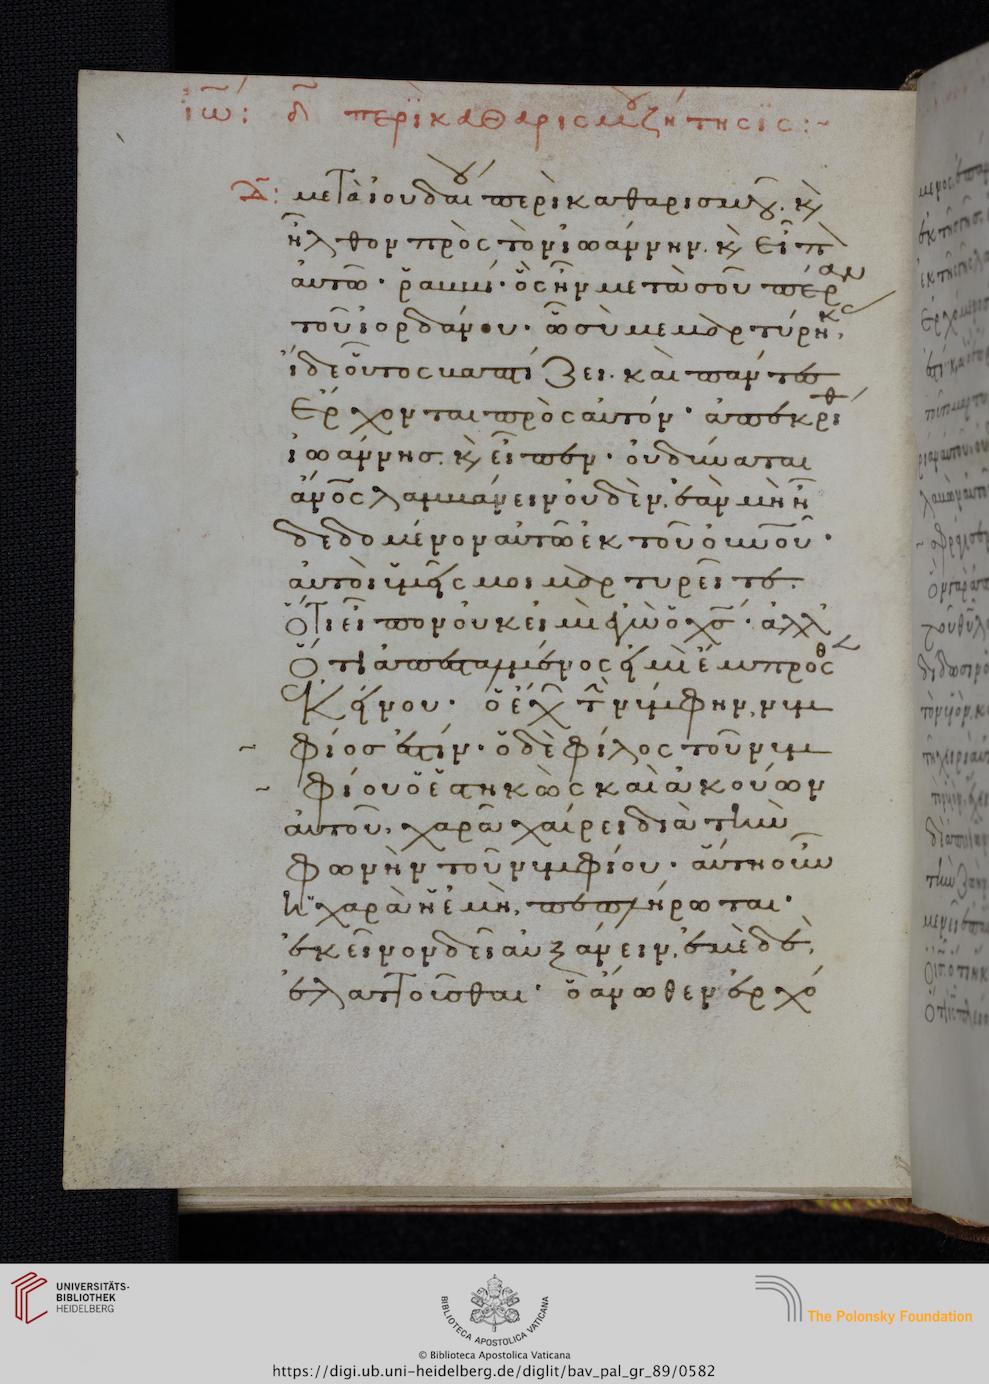 ἰω̅: δ̅ περὶ καθαρισμοῦ ζήτησις:~
δ̅: μετὰ ἰουδαίου περὶ καθαρισμοῦ. κ(αὶ)
ἦλθον πρὸς τὸν ἰωάννην. κ(αὶ) εἶπ(ον)
αὐτῶ· ῥαββί· ὃς ἦν μετὰ σοῦ πέραν
τοῦ ἰορδάνου· ᾧ σὺ μεμαρτύρηκας,
ἴδε οὗτος βαπτίζει. καὶ πάντες
ἔρχονται πρὸς αὐτόν· ἀπεκρίθ(η)
ἰωάννησ. κ(αὶ) εἶπεν· οὐ δύναται
ἄν̅ο̅ς̅ λαμβάνειν οὐδὲν, ἐὰν μὴ ἦ
δεδομένον αὐτῶ ἐκ τοῦ ο̅υ̅ν̅ο̅υ̅·
αὐτοὶ ὑμεῖς μοι μαρτυρεῖτε.
ὅτι εἶπον οὐκ εἰμὶ ἐγὼ ὁ χ̅σ̅· ἀλλ'
ὅτι ἀπεσταλμένος εἰμὶ ἔμπροσθ(εν)
ἐκείνου· ὁ ἔχ(ων) τ(ὴν) νύμφην, νυμ
φίοσ ἐστίν· ὁ δὲ φίλος τοῦ νυμ
φίου ὁ ἑστηκὼς καὶ ἀκούων
αὐτοῦ, χαρᾶ χαίρει διὰ τὴν
φωνὴν τοῦ νυμφίου· αὕτη οὖν
ἡ χαρὰ ἡ ἐμὴ, πεπλήρωται·
ἐκεῖνον δεῖ αὐξάνειν, ἐμὲ δὲ,
ἐλαττοῦσθαι· ὁ ἄνωθεν ἐρχό
UNIVERSITÄTS-
BIBLIOTHEK
HEIDELBERG
BIBLIOTECA APOSTOLICA VATICANA
© Biblioteca Apostolica Vaticana
The Polonsky Foundation
https://digi.ub.uni-heidelberg.de/diglit/bav_pal_gr_89/0582